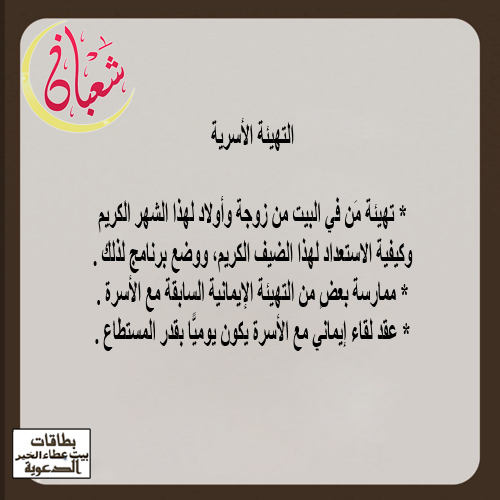 شعبان
التهيئة الأسرية
* تهيئة مَن في البيت من زوجة وأولاد لهذا الشهر الكريم
وكيفية الاستعداد لهذا الضيف الكريم، ووضع برنامج لذلك .
* ممارسة بعض من التهيئة الإيمانية السابقة مع الأسرة .
* عقد لقاء إيماني مع الأسرة يكون يوميًّا بقدر المستطاع .
بطاقات
بيت عطاء الخير
الدعوية